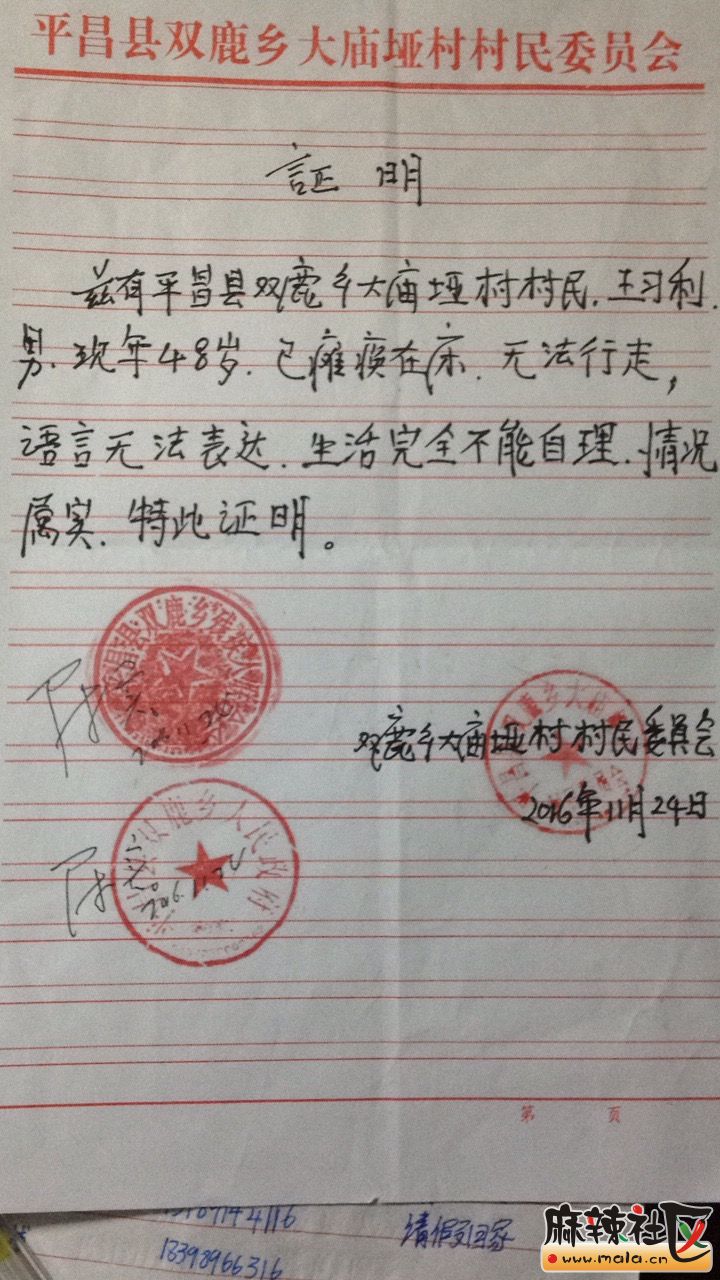 平昌县双鹿乡大庙垭村村民委员会
証明
兹有平昌县双鹿乡大庙垭村村民.王习利.
男.现年48岁.已瘫痪在床.无法行走,
语言无法表达.生活完全不能自理.情况
属实.特此证明。
双鹿乡大庙垭村村民委员会
2016年11月24日
双鹿乡人民政府
第 页
18398966316
请假回家
麻辣社区
www.mala.cn